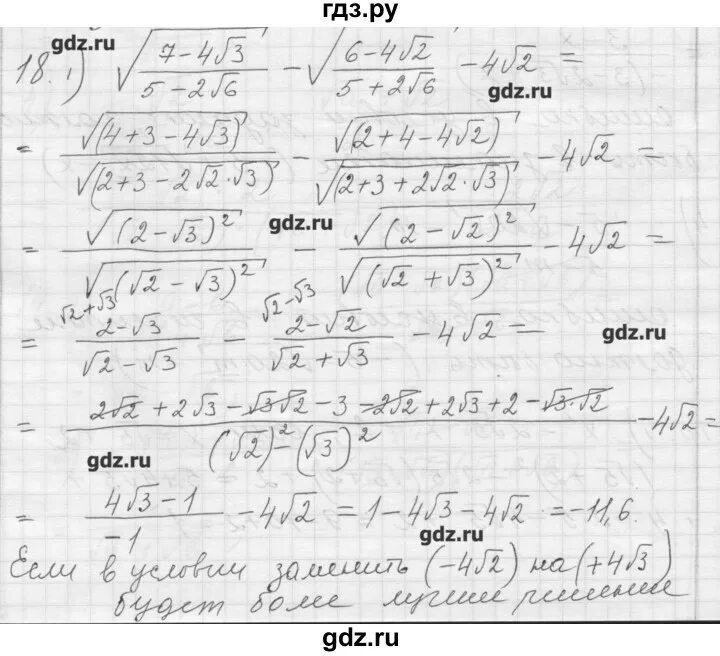 гдз.ру
gdz.ru
18. 1) √((7-4√3)/(5-2√6)) - √((6-4√2)/(5+2√6)) - 4√2 =
gdz.ru
= √(4+3-4√3)/√(2+3-2√2·√3) - √(2+4-4√2)/√(2+3+2√2·√3) - 4√2 =
gdz.ru
= √(2-√3)²/√(√2-√3)² - √(2-√2)²/√(√2+√3)² - 4√2 =
√2+√3 √2-√3
gdz.ru
= (2-√3)/(√2-√3) - (2-√2)/(√2+√3) - 4√2 =
= (2√2+2√3-√3√2-3-2√2+2√3+2-√3·√2)/((√2)²-(√3)²) - 4√2 =
gdz.ru
= (4√3-1)/(-1) - 4√2 = 1-4√3-4√2 = -11,6.
gdz.ru
Если в условии заменить (-4√2) на (+4√3)
будет более лучшее решение
gdz.ru